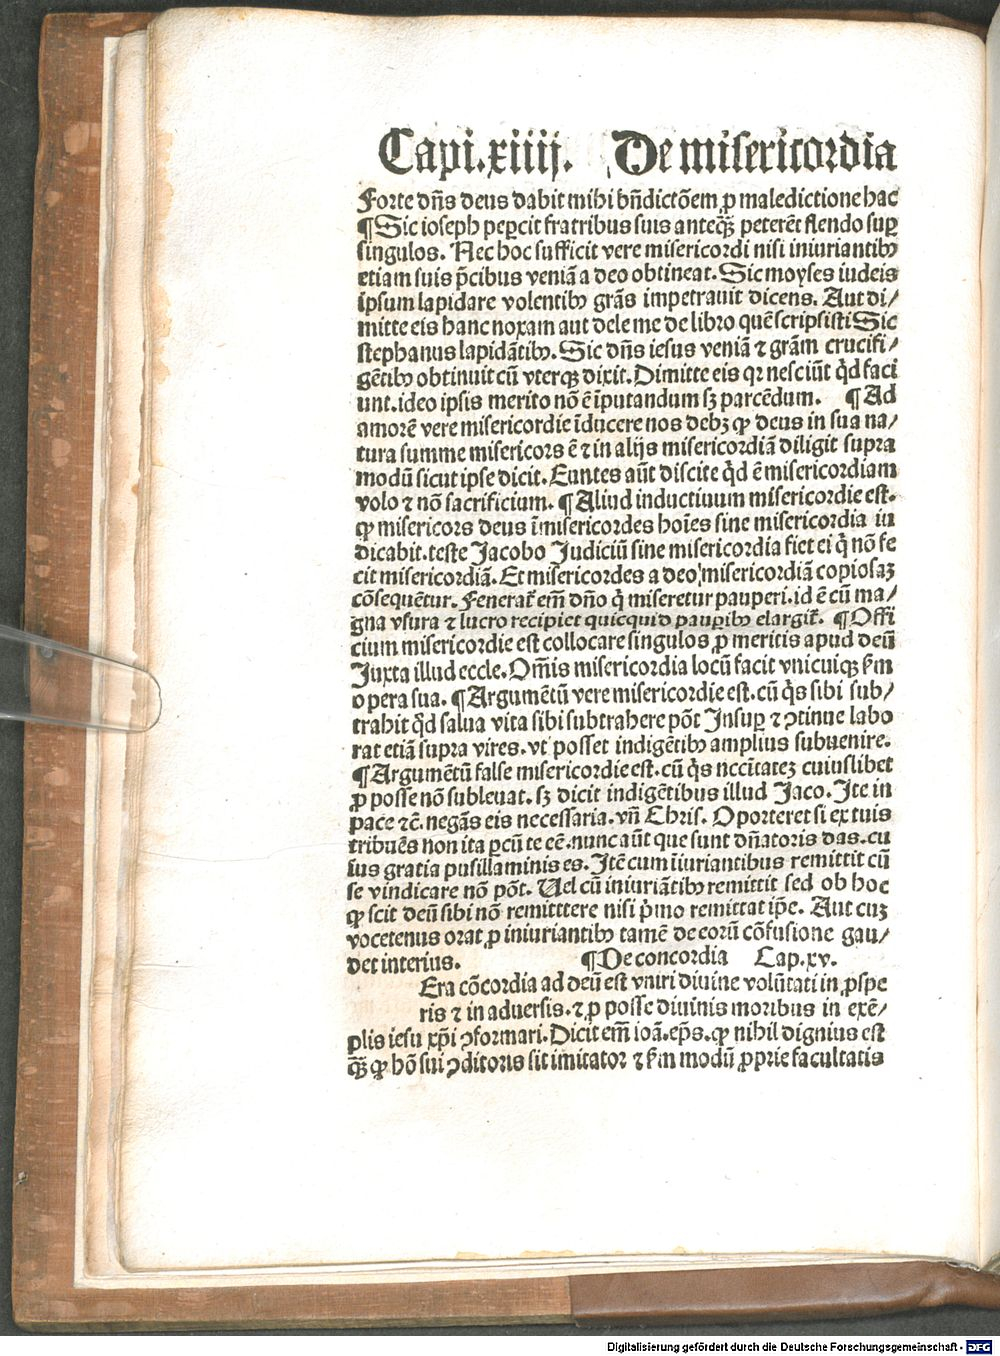 Capi.xiiij. De misericordia
Forte dn̄s deus dabit mihi bn̄dictōem ꝓ maledictione hac
¶ Sic ioseph peꝑcit fratribus suis anteqꝫ̄ peterēt flendo suꝑ
singulos. Nec hoc sufficit vere misericordi nisi iniuriantibꝰ
etiam suis p̄cibus veniā a deo obtineat. Sic moyses iudeis
ipsum lapidare volentibꝰ grās impetrauit dicens. Aut di/
mitte eis hanc noxam aut dele me de libro quē scripsisti Sic
stephanus lapidātibꝰ. Sic dn̄s iesus veniā ⁊ grām crucifi/
gētibꝰ obtinuit cū vterqꝫ dixit. Dimitte eis qꝛ nesciūt qd̄ faci
unt. ideo ipsis merito nō ē īputandum sꝫ parcēdum. ¶ Ad
amorē vere misericordie īducere nos debꝫ ꝙ deus in sua na/
tura summe misericors ē ⁊ in alijs misericordiā diligit supra
modū sicut ipse dicit. Euntes aūt discite qd̄ ē misericordiam
volo ⁊ nō sacrificium. ¶ Aliud inductiuum misericordie est.
ꝙ misericors deus īmisericordes hoīes sine misericordia iu
dicabit. teste Jacobo Judiciū sine misericordia fiet ei q̄ nō fe
cit misericordiā. Et misericordes a deo misericordiā copiosaꝫ
cōsequētur. Feneraĩ em̄ dn̄o q̄ miseretur pauperi. id ē cū ma/
gna vsura ⁊ lucro recipiet quicquid pauꝑibꝰ elargiĩ. ¶ Offi
cium misericordie est collocare singulos ꝓ meritis apud deū
Juxta illud eccle. Om̄is misericordia locū facit vnicuiqꝫ ẜm
opera sua. ¶ Argumētū vere misericordie est. cū q̄s sibi sub/
trahit qd̄ salua vita sibi subtrahere pōt Insuꝑ ⁊ ꝯtinue labo
rat etiā supra vires. vt posset indigētibꝰ amplius subuenire.
¶ Argumētū false misericordie est. cū q̄s nccītateꝫ cuiuslibet
ꝓ posse nō subleuat. sꝫ dicit indigētibus illud Jaco. Ite in
pace ⁊c̄. negās eis necessaria. vn̄ Chris. Oporteret si ex tuis
tribuēs non ita parcū te eē. nunc aūt que sunt dn̄atoris das. cu
ius gratia pusillaminis es. Itē cum īiuriantibus remittit cū
se vindicare nō pōt. Uel cū iniuriātibꝰ remittit sed ob hoc
ꝙ scit deū sibi nō remitttere nisi p̄mo remittat ip̄e. Aut cuꝫ
vocetenus orat ꝓ iniuriantibꝰ tamē de eorū cōfusione gau/
det interius. ¶ De concordia Cap.xv.
Era cōcordia ad deū est vniri diuine volūtati in ꝓspe
ris ⁊ in aduersis. ⁊ ꝓ posse diuinis moribus in exē/
plis iesu xp̄i ꝯformari. Dicit em̄ ioā. ep̄s. ꝙ nihil dignius est
qꝫ̄ ꝙ hō sui ꝯditoris sit imitator ⁊ ẜm modū ꝓprie facultatis
Digitalisierung gefördert durch die Deutsche Forschungsgemeinschaft - DFG